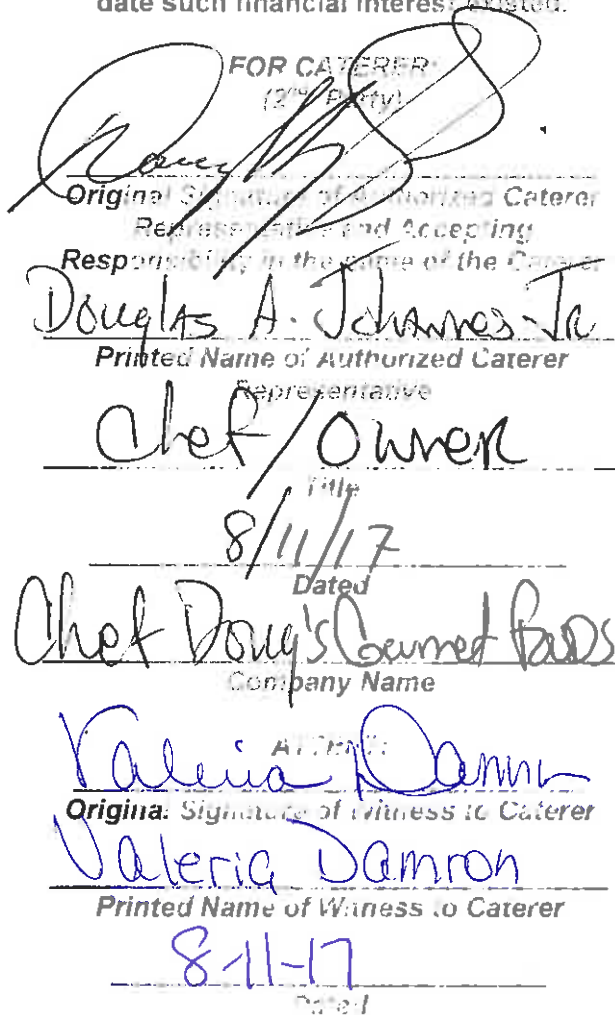 date such financial interest existed.
FOR CATERER:
(2nd Party)
Original Signature of Authorized Caterer
Representative and Accepting
Responsibility in the name of the Caterer
Douglas A. Johannes Jr
Printed Name of Authorized Caterer
Representative
Chef/Owner
Title
8/11/17
Dated
Chef Doug's Gourmet Foods
Company Name
ATTEST:
Valeria Damron
Original Signature of Witness to Caterer
Valeria Damron
Printed Name of Witness to Caterer
8-11-17
Dated